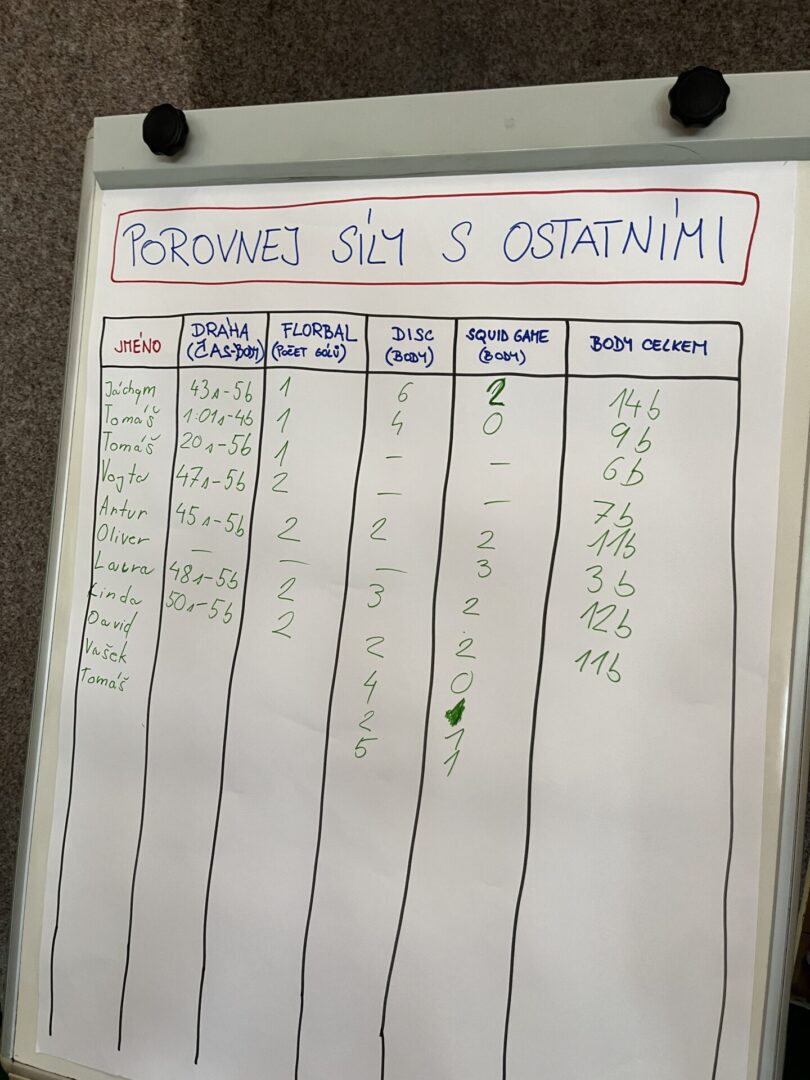 POROVNEJ SÍLY S OSTATNÍMI
JMÉNO DRÁHA (ČAS-BODY) FLORBAL (POČET GÓLŮ) DISC (BODY) SQUID GAME (BODY) BODY CELKEM
Jáchym 43s-5b 1 6 2 14b
Tomáš 1:01s-4b 1 4 0 9b
Tomáš 20s-5b 1 — — 6b
Vojta 47s-5b 2 — — 7b
Artur 45s-5b 2 2 2 11b
Oliver — — — 3 3b
Laura 48s-5b 2 3 2 12b
Linda 50s-5b 2 2 2 11b
David 4 0
Vašek 2 1
Tomáš 5 1